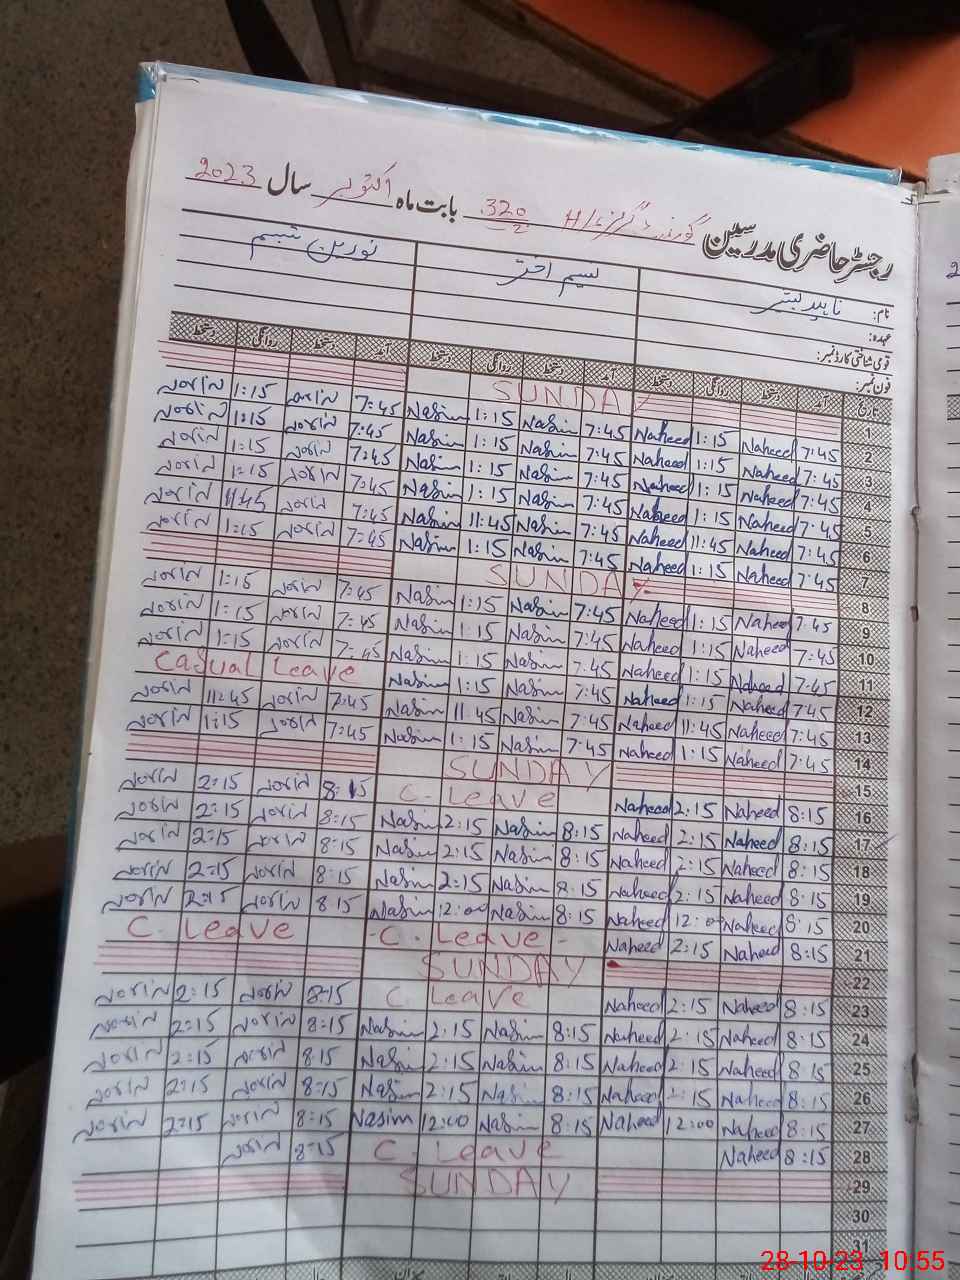 رجسٹر حاضری مدرسین گورنمنٹ گرلز H/S 320/2 بابت ماہ اکتوبر سال 2023
نام: ناہید نسیم اختر نورین تبسم
عہدہ:
قومی شناختی کارڈ نمبر:
فون نمبر:
تاریخ آمد دستخط روانگی دستخط آمد دستخط روانگی دستخط آمد دستخط روانگی دستخط
1 SUNDAY
2 7:45 Naheed 1:15 Naheed 7:45 Nasim 1:15 Nasim 7:45 Norin 1:15 Norin
3 7:45 Naheed 1:15 Naheed 7:45 Nasim 1:15 Nasim 7:45 Norin 1:15 Norin
4 7:45 Naheed 1:15 Naheed 7:45 Nasim 1:15 Nasim 7:45 Norin 1:15 Norin
5 7:45 Naheed 1:15 Naheed 7:45 Nasim 1:15 Nasim 7:45 Norin 1:15 Norin
6 7:45 Naheed 11:45 Naheed 7:45 Nasim 11:45 Nasim 7:45 Norin 11:45 Norin
7 7:45 Naheed 1:15 Naheed 7:45 Nasim 1:15 Nasim 7:45 Norin 1:15 Norin
8 SUNDAY
9 7:45 Naheed 1:15 Naheed 7:45 Nasim 1:15 Nasim 7:45 Norin 1:15 Norin
10 7:45 Naheed 1:15 Naheed 7:45 Nasim 1:15 Nasim 7:45 Norin 1:15 Norin
11 7:45 Naheed 1:15 Naheed 7:45 Nasim 1:15 Nasim 7:45 Norin 1:15 Norin
12 7:45 Naheed 1:15 Naheed 7:45 Nasim 1:15 Nasim Casual Leave
13 7:45 Naheed 11:45 Naheed 7:45 Nasim 11:45 Nasim 7:45 Norin 11:45 Norin
14 7:45 Naheed 1:15 Naheed 7:45 Nasim 1:15 Nasim 7:45 Norin 1:15 Norin
15 SUNDAY
16 8:15 Naheed 2:15 Naheed C. Leave 8:15 Norin 2:15 Norin
17 8:15 Naheed 2:15 Naheed 8:15 Nasim 2:15 Nasim 8:15 Norin 2:15 Norin
18 8:15 Naheed 2:15 Naheed 8:15 Nasim 2:15 Nasim 8:15 Norin 2:15 Norin
19 8:15 Naheed 2:15 Naheed 8:15 Nasim 2:15 Nasim 8:15 Norin 2:15 Norin
20 8:15 Naheed 12:00 Naheed 8:15 Nasim 12:00 Nasim 8:15 Norin 2:15 Norin
21 8:15 Naheed 2:15 Naheed -C. Leave- C. Leave
22 SUNDAY
23 8:15 Naheed 2:15 Naheed C. Leave 8:15 Norin 2:15 Norin
24 8:15 Naheed 2:15 Naheed 8:15 Nasim 2:15 Nasim 8:15 Norin 2:15 Norin
25 8:15 Naheed 2:15 Naheed 8:15 Nasim 2:15 Nasim 8:15 Norin 2:15 Norin
26 8:15 Naheed 2:15 Naheed 8:15 Nasim 2:15 Nasim 8:15 Norin 2:15 Norin
27 8:15 Naheed 12:00 Naheed 8:15 Nasim 12:00 Nasim 8:15 Norin 2:15 Norin
28 8:15 Naheed C. Leave 8:15 Norin
29 SUNDAY
30
31
28-10-23 10:55